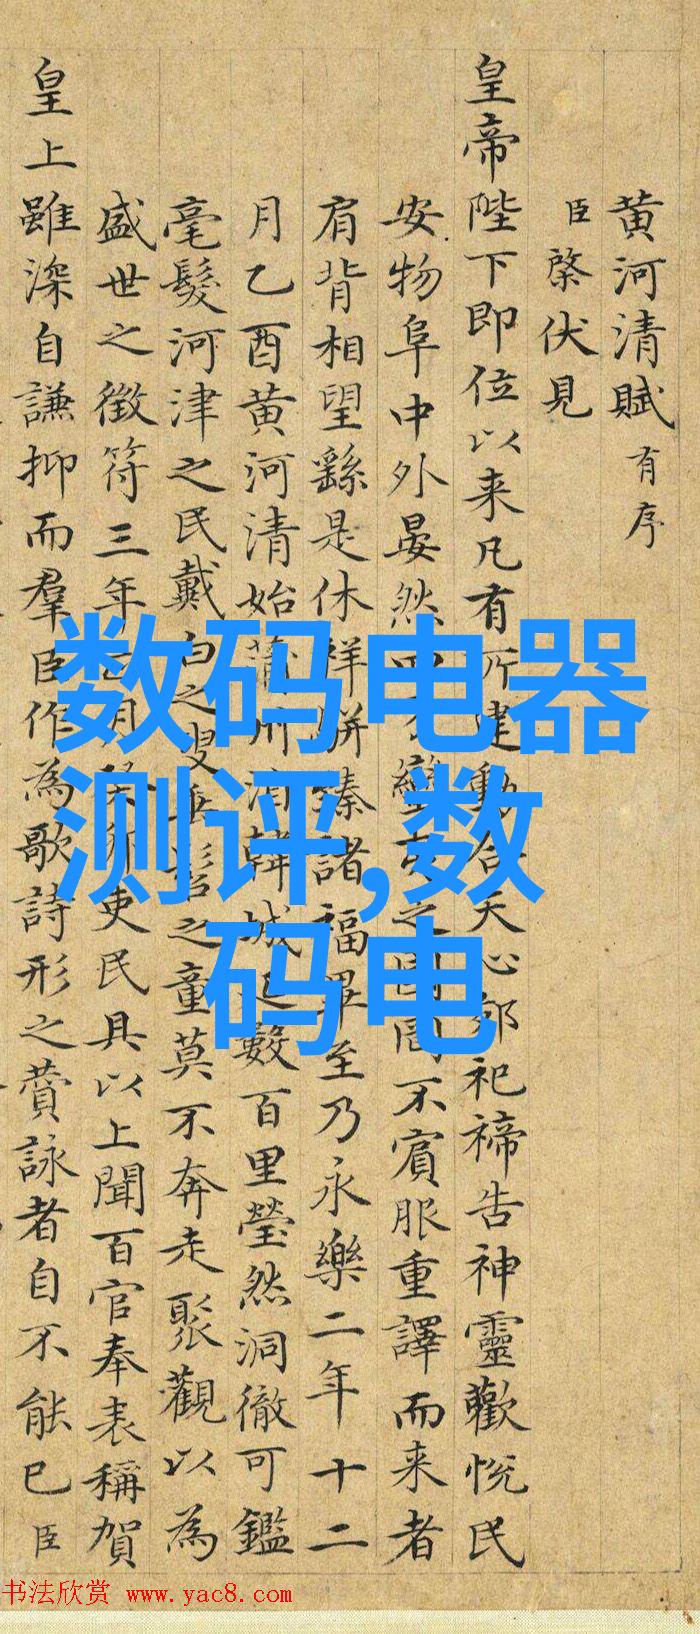 黄河清賦有序
臣棨伏見
皇帝陛下即位以来凡有所建動合天心郊祀禘告神靈歡悦民
安物阜中外晏然四
之
不賓服重譯而来者
肩背相望繇是休祥駢臻諸福畢至乃永樂二年十二
月乙酉黄河清始蒲州
韓城
數百里瑩然洞徹可鑑
毫髮河津之民戴白之叟垂髫之童莫不奔走聚觀以為
盛世之徵符三年
月
吏民具以上聞百官奉表稱賀
皇上雖深自謙抑而羣臣作為歌詩形之賛詠者自不能已臣
数码电器
测评,数
码电
书法欣赏 www.yac8.com